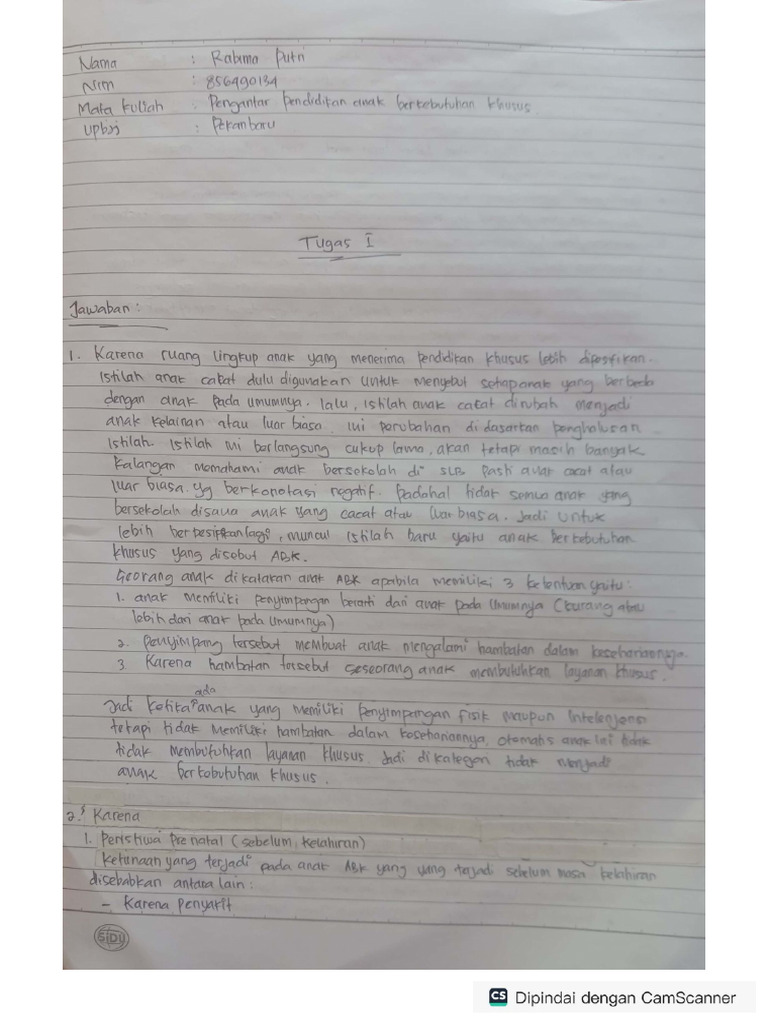 Nama : Rahma Putri
Nim : 856490134
Mata kuliah : Pengantar pendidikan anak berkebutuhan khusus
Upbjj : Pekanbaru
Tugas I
Jawaban :
1. Karena ruang lingkup anak yang menerima pendidikan khusus lebih
Istilah anak cacat dulu digunakan untuk menyebut setiap anak yang berbeda
dengan anak pada umumnya. lalu, istilah anak cacat dirubah menjadi
anak kelainan atau luar biasa. ini perubahan didasarkan penghalusan
istilah. Istilah ini berlangsung cukup lama, akan tetapi masih banyak
kalangan memahami anak bersekolah di SLB pasti anak cacat atau
luar biasa. yg berkonotasi negatif. padahal tidak semua anak yang
bersekolah disana anak yang cacat atau luar biasa. Jadi untuk
lebih lagi, muncul istilah baru yaitu anak berkebutuhan
khusus yang disebut ABK.
Seorang anak dikatakan anak ABK apabila memiliki 3 ketentuan yaitu:
1. anak memiliki penyimpangan berarti dari anak pada umumnya (kurang atau
lebih dari anak pada umumnya)
2. Penyimpang tersebut membuat anak mengalami hambatan dalam kesehariannya.
3. Karena hambatan tersebut seseorang anak membutuhkan layanan khusus.
Jadi ketika ada anak yang memiliki penyimpangan fisik maupun intelenjensi
tetapi tidak memiliki hambatan dalam kesehariannya, otomatis anak tidak
tidak membutuhkan layanan khusus. Jadi di kategori tidak menjadi
anak berkebutuhan khusus.
2. Karena
1. Peristiwa pre natal (sebelum kelahiran)
Ketunaan yang terjadi pada anak ABK yang yang terjadi sebelum masa kelahiran
disebabkan antara lain :
- Karena penyakit
SIDU
CS Dipindai dengan CamScanner